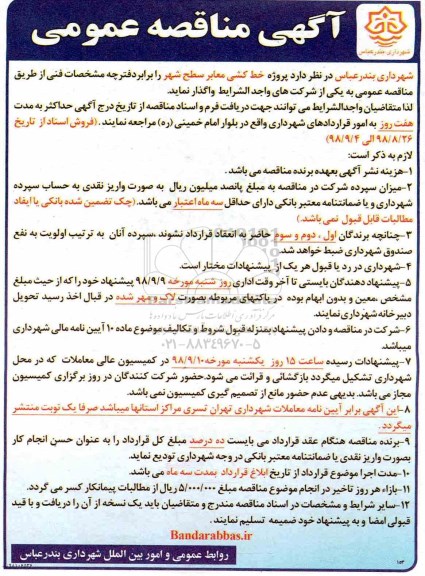 آگهی مناقصه عمومی
شهرداری بندرعباس
شهرداری بندرعباس در نظر دارد پروژه خط کشی معابر سطح شهر را برابر دفترچه مشخصات فنی از طریق
مناقصه عمومی به یکی از شرکت های واجد الشرایط واگذار نماید.
لذا متقاضیان واجدالشرایط می توانند جهت دریافت فرم و اسناد مناقصه از تاریخ درج آگهی حداکثر به مدت
هفت روز به امور قراردادهای شهرداری واقع در بلوار امام خمینی (ره) مراجعه نمایند .(فروش اسناد از تاریخ
۹۸/۸/۲۶ الی ۹۸/۹/۴)
لازم به ذکر است:
۱-هزینه نشر آگهی بعهده برنده مناقصه می باشد .
۲-میزان سپرده شرکت در مناقصه به مبلغ پانصد میلیون ریال به صورت واریز نقدی به حساب سپرده
شهرداری و یا ضمانتنامه معتبر بانکی دارای حداقل سه ماه اعتبار می باشد.(چک تضمین شده بانکی یا ایفاد
مطالبات قابل قبول نمی باشد.)
۳-چنانچه برندگان اول ، دوم و سوم حاضر به انعقاد قرارداد نشوند ،سپرده آنان به ترتیب اولویت به نفع
صندوق شهرداری ضبط خواهد شد.
۴-شهرداری در رد یا قبول هر یک از پیشنهادات مختار است.
۵-پیشنهاد دهندگان بایستی تا آخر وقت اداری روز شنبه مورخه ۹۸/۹/۹ پیشنهاد خود را که از حیث مبلغ
مشخص ،معین و بدون ابهام بوده در پاکتهای مربوطه بصورت لاک و مهر شده در قبال اخذ رسید تحویل
دبیرخانه شهرداری نمایند.
۰۲۱-۸۸۳۴۹۶۷۰-۵
۶-شرکت در مناقصه و دادن پیشنهاد بمنزله قبول شروط و تکالیف موضوع ماده ۱۰ آیین نامه مالی شهرداری
میباشد.
۷-پیشنهادات رسیده ساعت ۱۵ روز یکشنبه مورخه ۹۸/۹/۱۰ در کمیسیون عالی معاملات که در محل
شهرداری تشکیل میگردد بازگشائی و قرائت می شود.حضور شرکت کنندگان در روز برگزاری کمیسیون
مجاز می باشد. بدیهی عدم حضور مانع از تصمیم گیری کمیسیون نمی باشد.
۸-این آگهی برابر آیین نامه معاملات شهرداری تهران تسری مراکز استانها میباشد صرفا یک نوبت منتشر
میگردد .
۹-برنده مناقصه هنگام عقد قرارداد می بایست ده درصد مبلغ کل قرارداد را به عنوان حسن انجام کار
بصورت واریز نقدی یا ضمانتنامه معتبر بانکی در وجه شهرداری تودیع نماید.
۱۰-مدت اجرا موضوع قرارداد از تاریخ ابلاغ قرارداد بمدت سه ماه می باشد.
۱۱-بازاء هر روز تاخیر در انجام موضوع مناقصه مبلغ ۵/۰۰۰/۰۰۰ ریال از مطالبات پیمانکار کسر می گردد.
۱۲-سایر شرایط و مشخصات در اسناد مناقصه مندرج و متقاضیان باید یک نسخه از آن را دریافت و با قید
قبولی امضا و به پیشنهاد خود ضمیمه تسلیم نمایند.
Bandarabbas.ir
روابط عمومی و امور بین الملل شهرداری بندرعباس